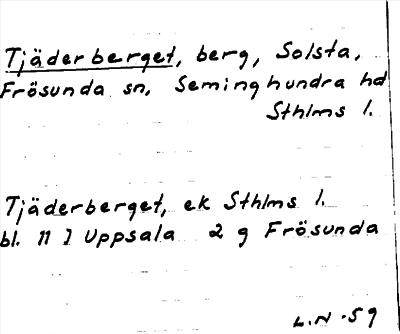 Tjäderberget, berg, Solsta,
Frösunda sn, Seminghundra hd
Sthlms l.
Tjäderberget, ek Sthlms l.
bl. 11 I Uppsala 2 g Frösunda
L.N.-59